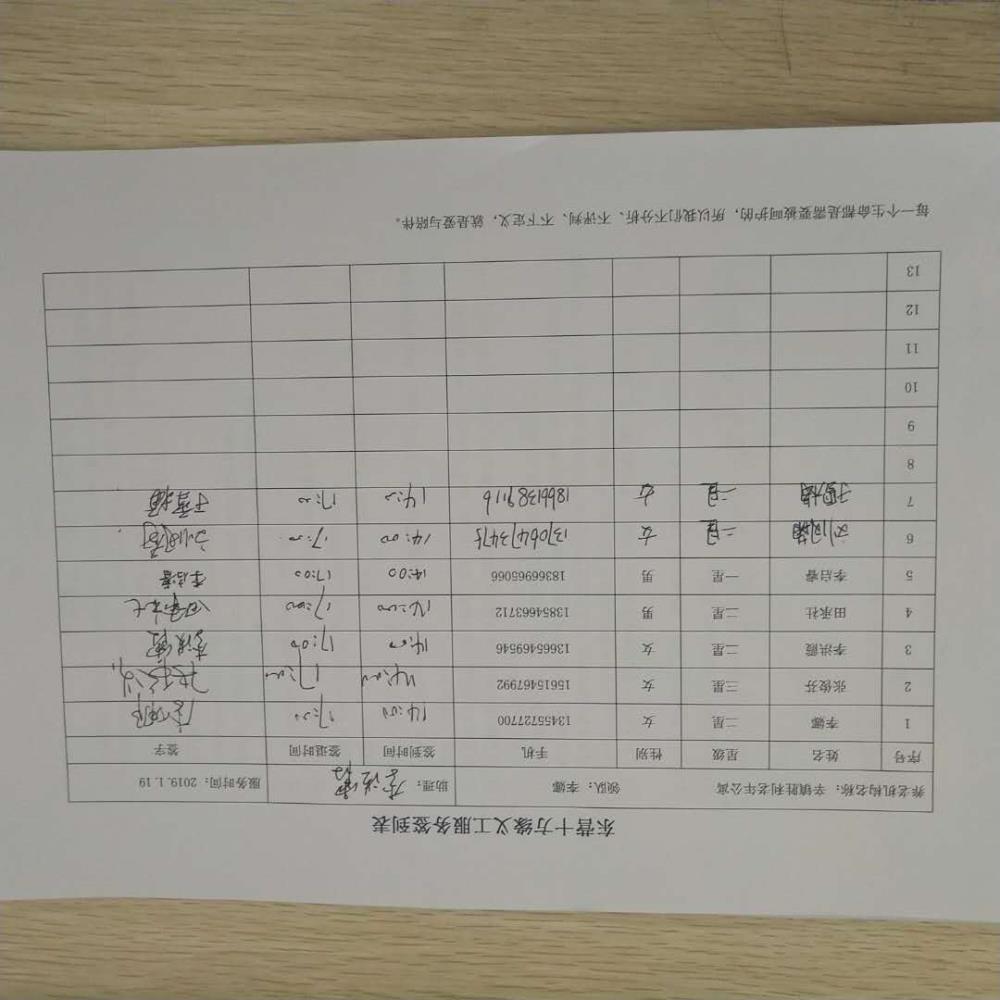 东营十方缘义工服务签到表
养老机构名称：辛镇胜利老年公寓 领队：李娜 助理：李洪霞 服务时间：2019.1.19
序号 姓名 星级 性别 手机 签到时间 签退时间 签字
1 李娜 二星 女 13455727700 14:00 17:00 李娜
2 张俊芬 三星 女 15615467992 14:00 17:00 张俊芬
3 李洪霞 二星 女 13665469546 14:00 17:00 李洪霞
4 田承社 二星 男 13854663712 14:00 17:00 田承社
5 李启睿 一星 男 18366965066 14:00 17:00 李启睿
6 二星 女 13706473475 14:00 17:00
7 二星 女 18661389116 14:00 17:00
8
9
10
11
12
13
每一个生命都是需要被呵护的，所以我们不分析、不评判、不下定义，就是爱与陪伴。